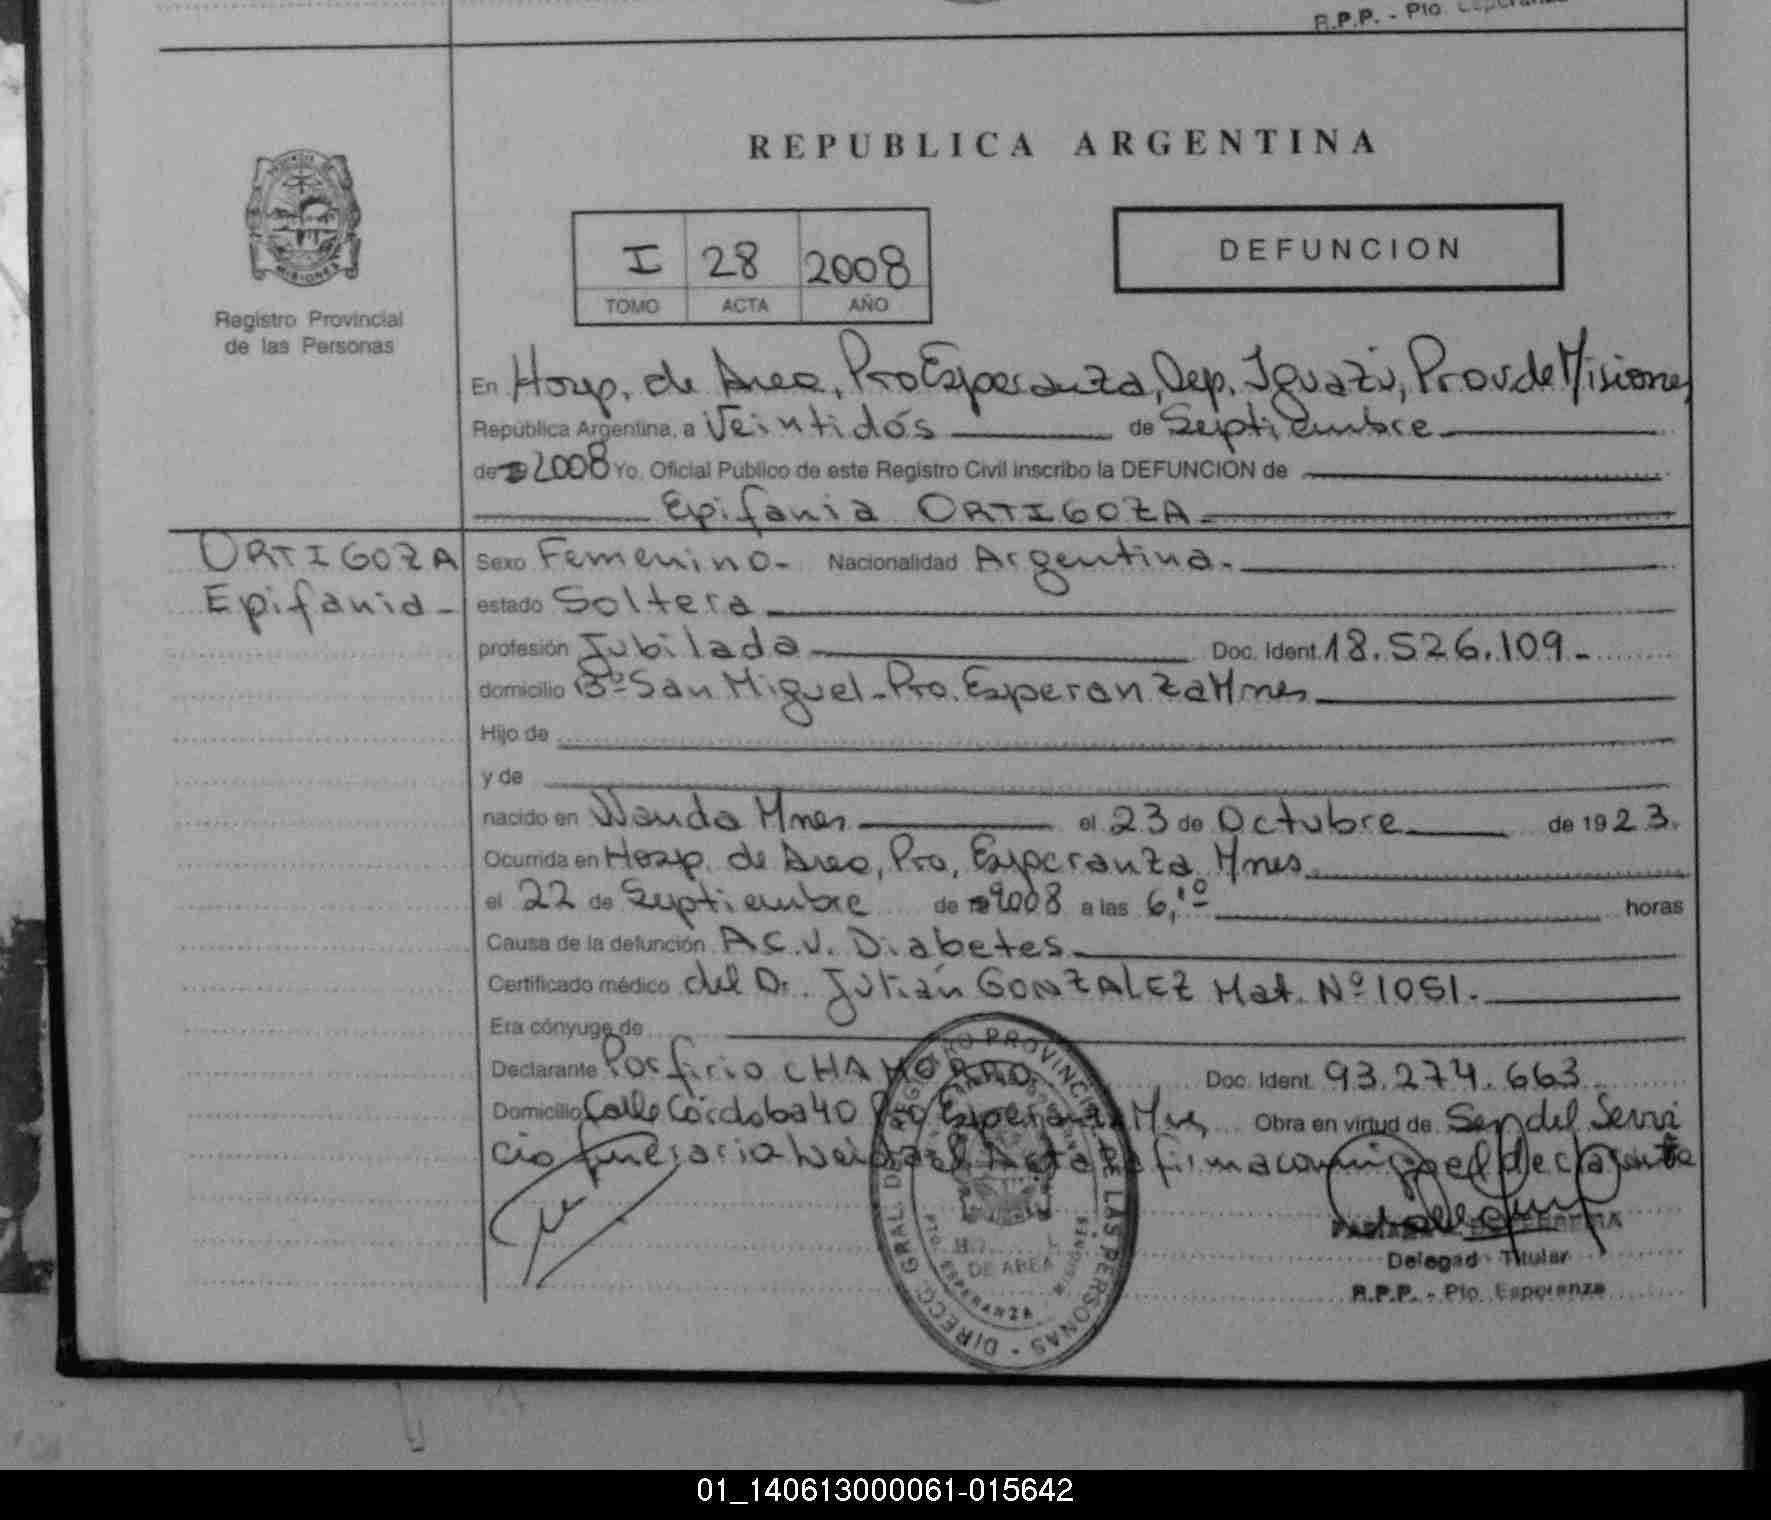 R.P.P. - Pto.
REPUBLICA ARGENTINA
MISIONES
Registro Provincial
de las Personas
I 28 2008
TOMO ACTA AÑO
DEFUNCION
En Hosp. de Area, Pto Esperanza, Dep. Iguazú, Prov de Misiones,
República Argentina, a Veintidós de Septiembre
de 2008 Yo, Oficial Público de este Registro Civil inscribo la DEFUNCION de
Epifania ORTIGOZA
ORTIGOZA
Epifania
Sexo Femenino. Nacionalidad Argentina.
estado Soltera
profesión Jubilada Doc. Ident. 18.526.109
domicilio Bº San Miguel - Pto. Esperanza Mnes
Hijo de
y de
nacido en Wanda Mnes el 23 de Octubre de 1923.
Ocurrida en Hosp. de Area, Pto, Esperanza, Mnes
el 22 de Septiembre de 2008 a las 6,10 horas
Causa de la defunción A.C.V. Diabetes
Certificado médico del Dr. Julián GONZALEZ Mat. Nº 1051.
Era cónyuge de
Declarante Porfirio CHAMORRO Doc. Ident. 93.274.663
Domicilio Calle Córdoba 40 Pto Esperanza Mnes Obra en virtud de Sep del Servi
cio funerario Leida el Acta firma conmigo el declarante
DIRECC. GRAL. DEL REGISTRO PROVINCIAL DE LAS PERSONAS
DE AREA
PTO. ESPERANZA MISIONES
Delegad Titular
R.P.P. - Pto. Esperanza
01_140613000061-015642